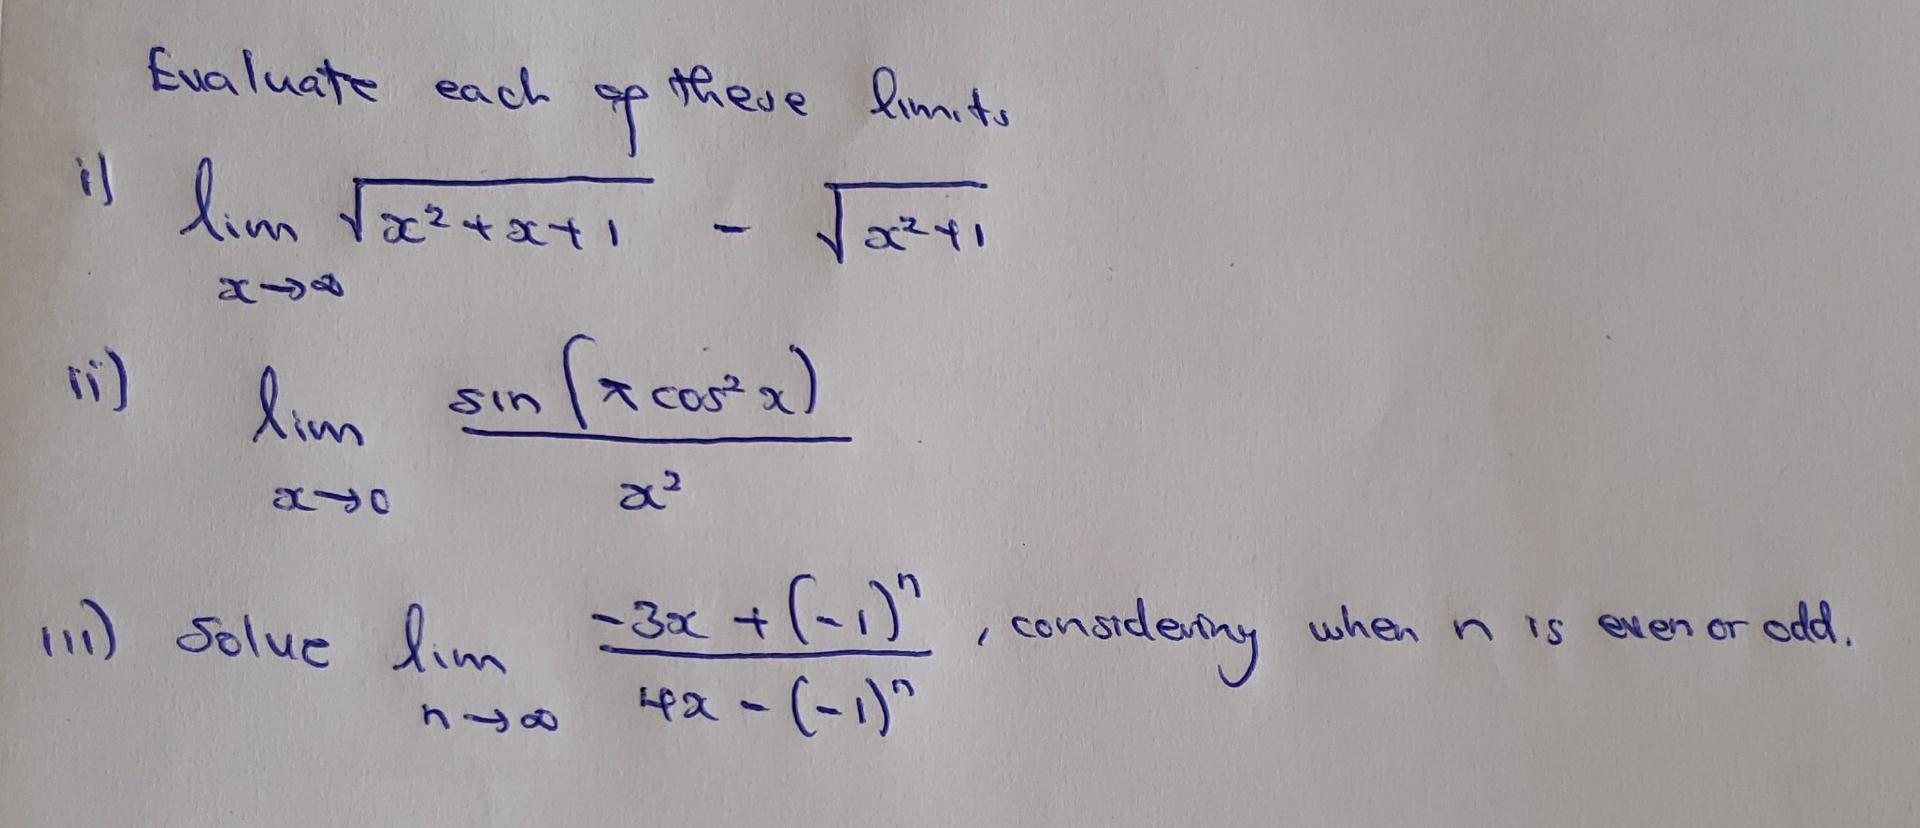 Evaluate each of these limits
i) lim x→∞ √(x²+x+1) - √(x²+1)
ii) lim x→0 sin(π cos² x) / x²
iii) Solve lim n→∞ (-3x + (-1)ⁿ) / (4x - (-1)ⁿ), considering when n is even or odd.